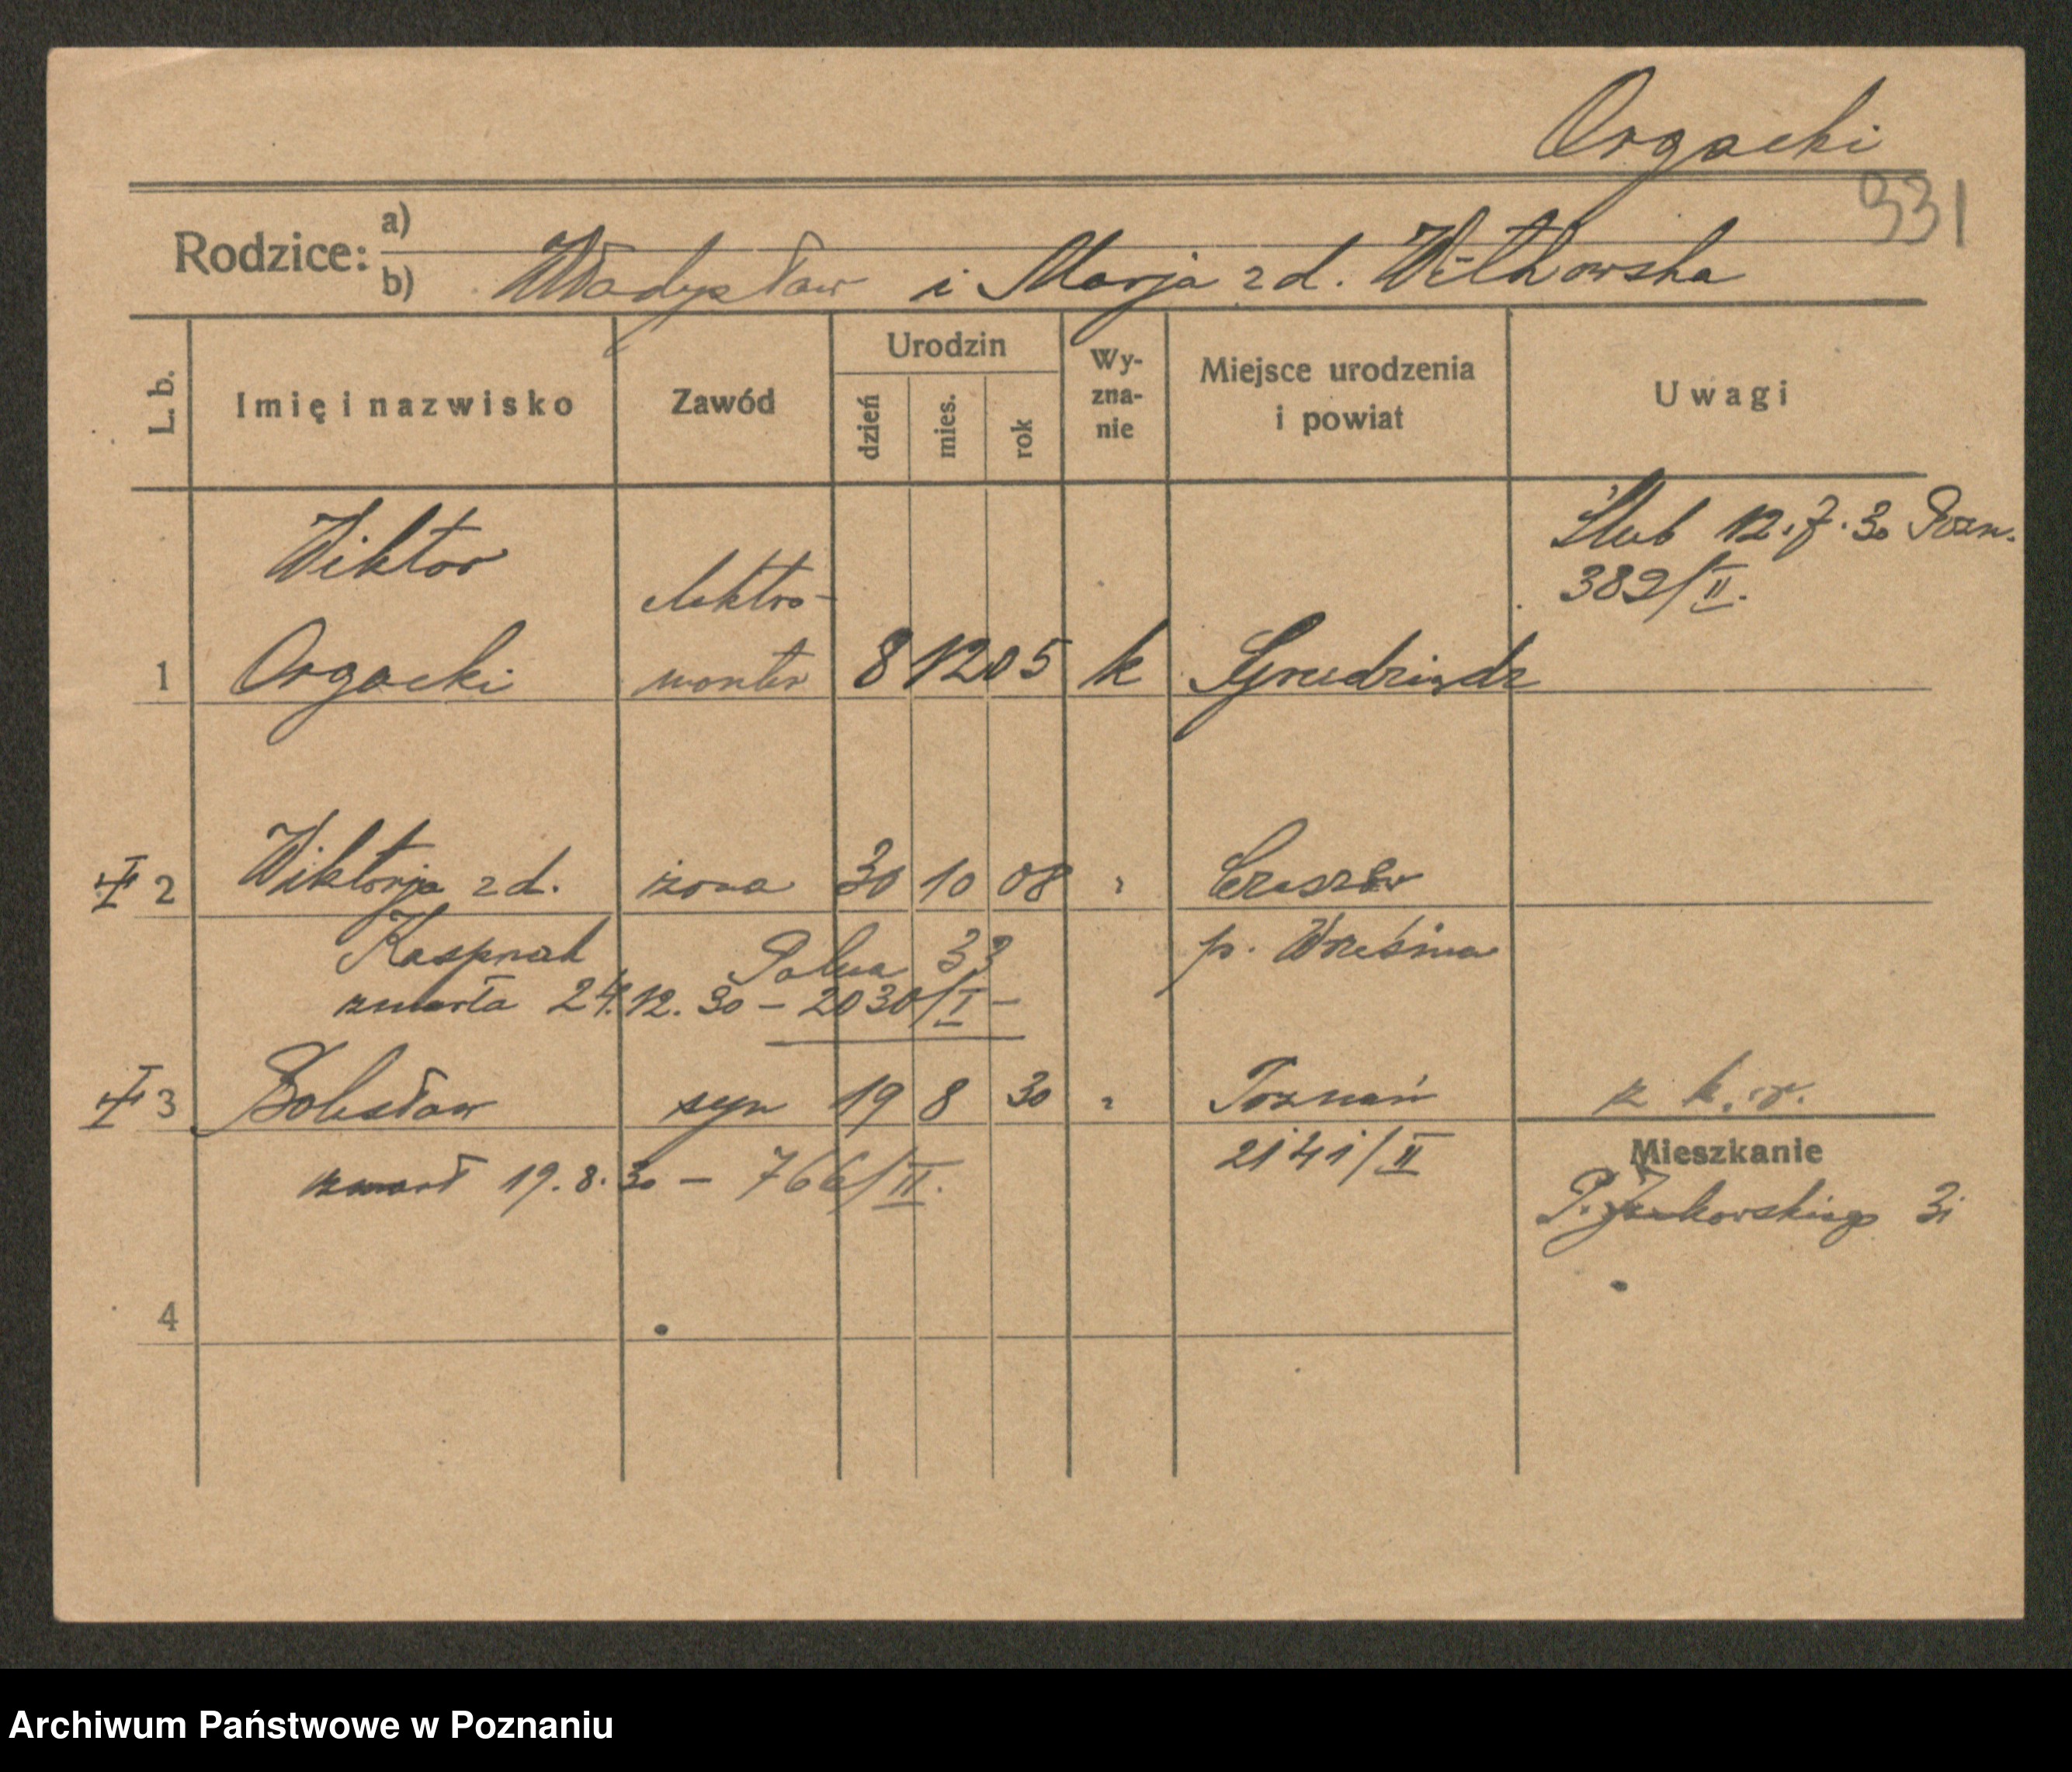 Orgacki
931
Rodzice: a)
b) Władysław i Marja z d. Witkowska
L. b. Imię i nazwisko Zawód Urodzin dzień mies. rok Wy-zna-nie Miejsce urodzenia i powiat Uwagi
Ślub 12.7.30 Pozn.
382/II.
Wiktor elektro-
1 Orgacki monter 8 12 05 k Grudziądz
I 2 Wiktorja z d. żona 30 10 08 " Czeszów
Kasprzak Polna 33 p. Września
zmarła 24.12.30 – 2030/I –
I 3 Bolesław syn 19 8 30 " Poznań z k. r.
2141/II
zmarł 19.8.30 – 766/II.
Mieszkanie
P. 31
4
Archiwum Państwowe w Poznaniu